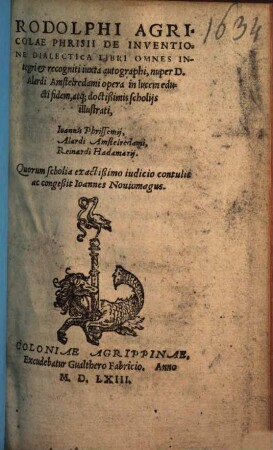 1634
RODOLPHI AGRI-
COLAE PHRISII DE INVENTIO-
NE DIALECTICA LIBRI OMNES IN-
tegri & recogniti iuxta autographi, nuper D.
Alardi Amstelredami opera in lucem edu-
cti fidem, atq; doctißimis scholijs
illustrati,
Ioannis Phrissemij,
Alardi Amstelredami,
Reinardi Hadamarij.
Quorum scholia exactißimo iudicio contulit
ac congeßit Ioannes Nouiomagus.
COLONIAE AGRIPPINAE,
Excudebatur Gualthero Fabricio. Anno
M. D. LXIII.